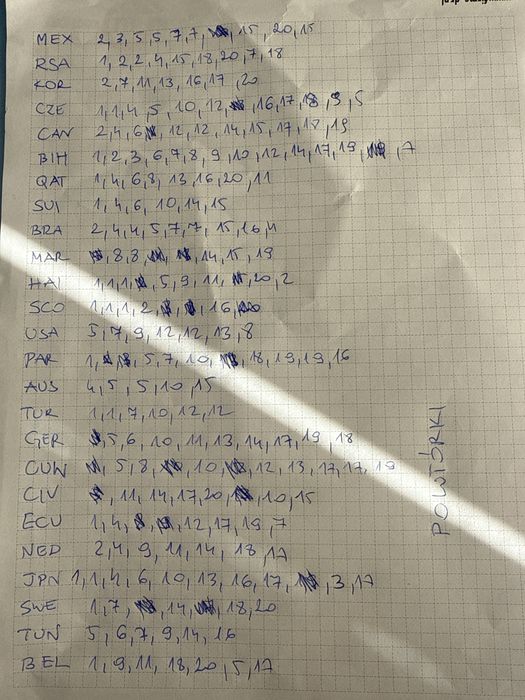 MEX 2, 3, 5, 5, 7, 7, 15, 20, 15
RSA 1, 2, 2, 4, 15, 18, 20, 7, 18
KOR 2, 7, 11, 13, 16, 17, 20
CZE 1, 1, 4, 5, 10, 12, 16, 17, 18, 9, 5
CAN 2, 4, 6, 12, 12, 14, 15, 17, 18, 19
BIH 1, 2, 3, 6, 7, 8, 9, 10, 12, 14, 17, 19, 7
QAT 1, 4, 6, 8, 13, 16, 20, 11
SUI 1, 4, 6, 10, 14, 15
BRA 2, 4, 4, 5, 7, 7, 15, 16, 4
MAR 8, 8, 14, 15, 19
HAI 1, 1, 1, 5, 9, 11, 20, 2
SCO 1, 1, 1, 2, 16
USA 5, 7, 9, 12, 12, 13, 8
PAR 1, 5, 7, 10, 18, 19, 19, 16
AUS 4, 5, 5, 10, 15
TUR 1, 1, 7, 10, 12, 12
GER 5, 6, 10, 11, 13, 14, 17, 19, 18
CUW 5, 8, 10, 12, 13, 17, 17, 19
CIV 11, 14, 17, 20, 10, 15
ECU 1, 4, 12, 17, 19, 7
NED 2, 4, 9, 11, 14, 18, 17
JPN 1, 1, 4, 6, 10, 13, 16, 17, 3, 17
SWE 1, 7, 14, 18, 20
TUN 5, 6, 7, 9, 14, 16
BEL 1, 9, 11, 18, 20, 5, 17
POWTÓRKI